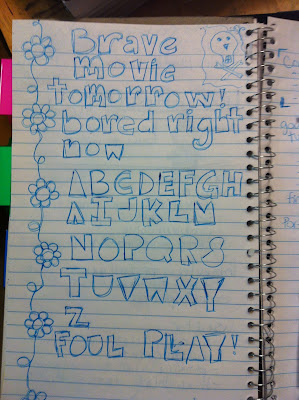 Brave
movie
tomorrow!
bored right
now
ABCDEFGH
AIJKLM
NOPQRS
TUVWXY
Z
FOUL PLAY!